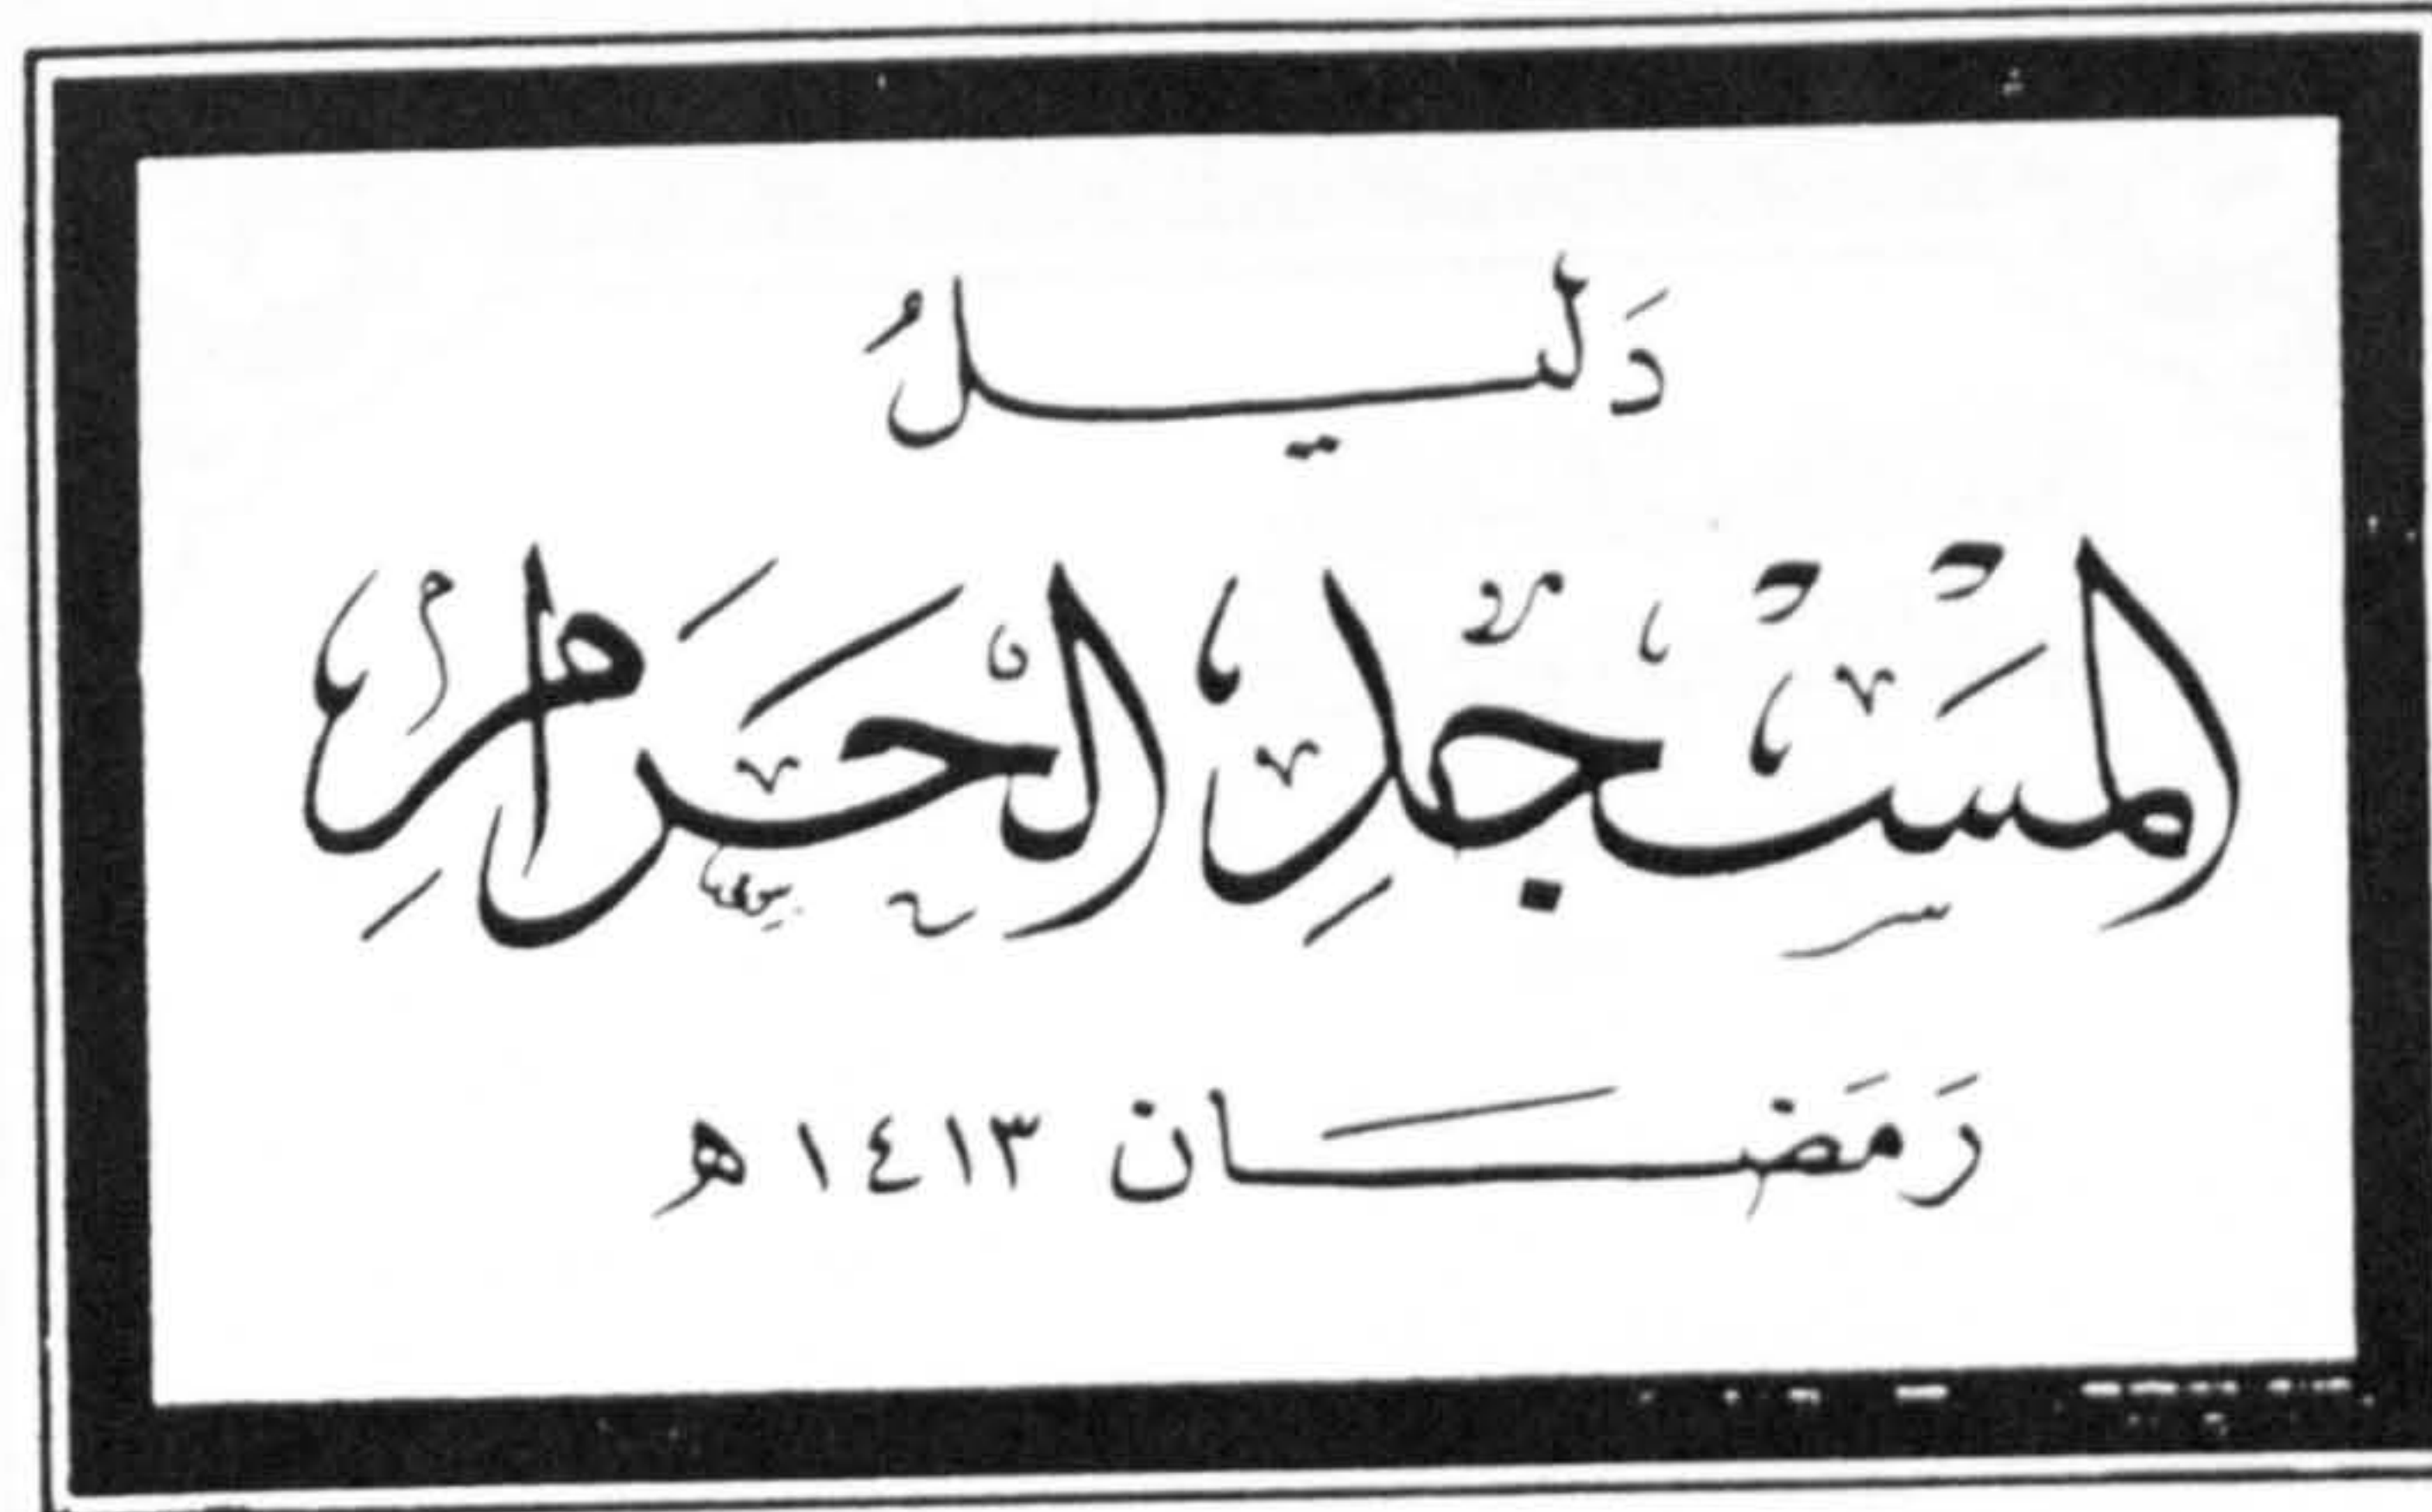 دَليـــلُ
المَسْجِدِ الحَرَامِ
رَمَضَـــان ١٤١٣ هـ